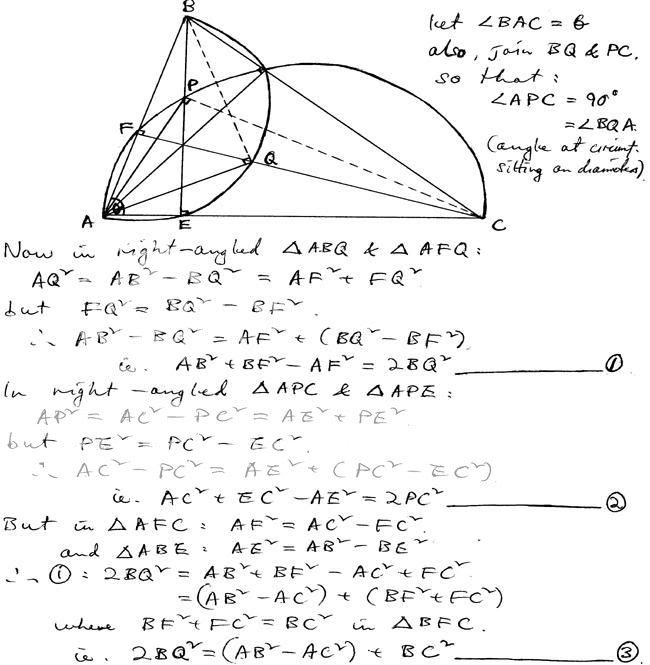 B
Let ∠BAC = θ
also, join BQ & PC.
so that:
∠APC = 90°
= ∠BQA.
(angle at circumf.
sitting on diameter)
P
F
Q
A
E
C
Now in right-angled △ABQ & △AFQ:
AQ² = AB² - BQ² = AF² + FQ²
but FQ² = BQ² - BF².
∴ AB² - BQ² = AF² + (BQ² - BF²)
ie. AB² + BF² - AF² = 2BQ² ①
In right-angled △APC & △APE:
AP² = AC² - PC² = AE² + PE²
but PE² = PC² - EC².
∴ AC² - PC² = AE² + (PC² - EC²)
ie. AC² + EC² - AE² = 2PC² ②
But in △AFC: AF² = AC² - FC²
and △ABE: AE² = AB² - BE²
∴ ①: 2BQ² = AB² + BF² - AC² + FC²
= (AB² - AC²) + (BF² + FC²)
where BF² + FC² = BC² in △BFC.
ie. 2BQ² = (AB² - AC²) + BC² ③